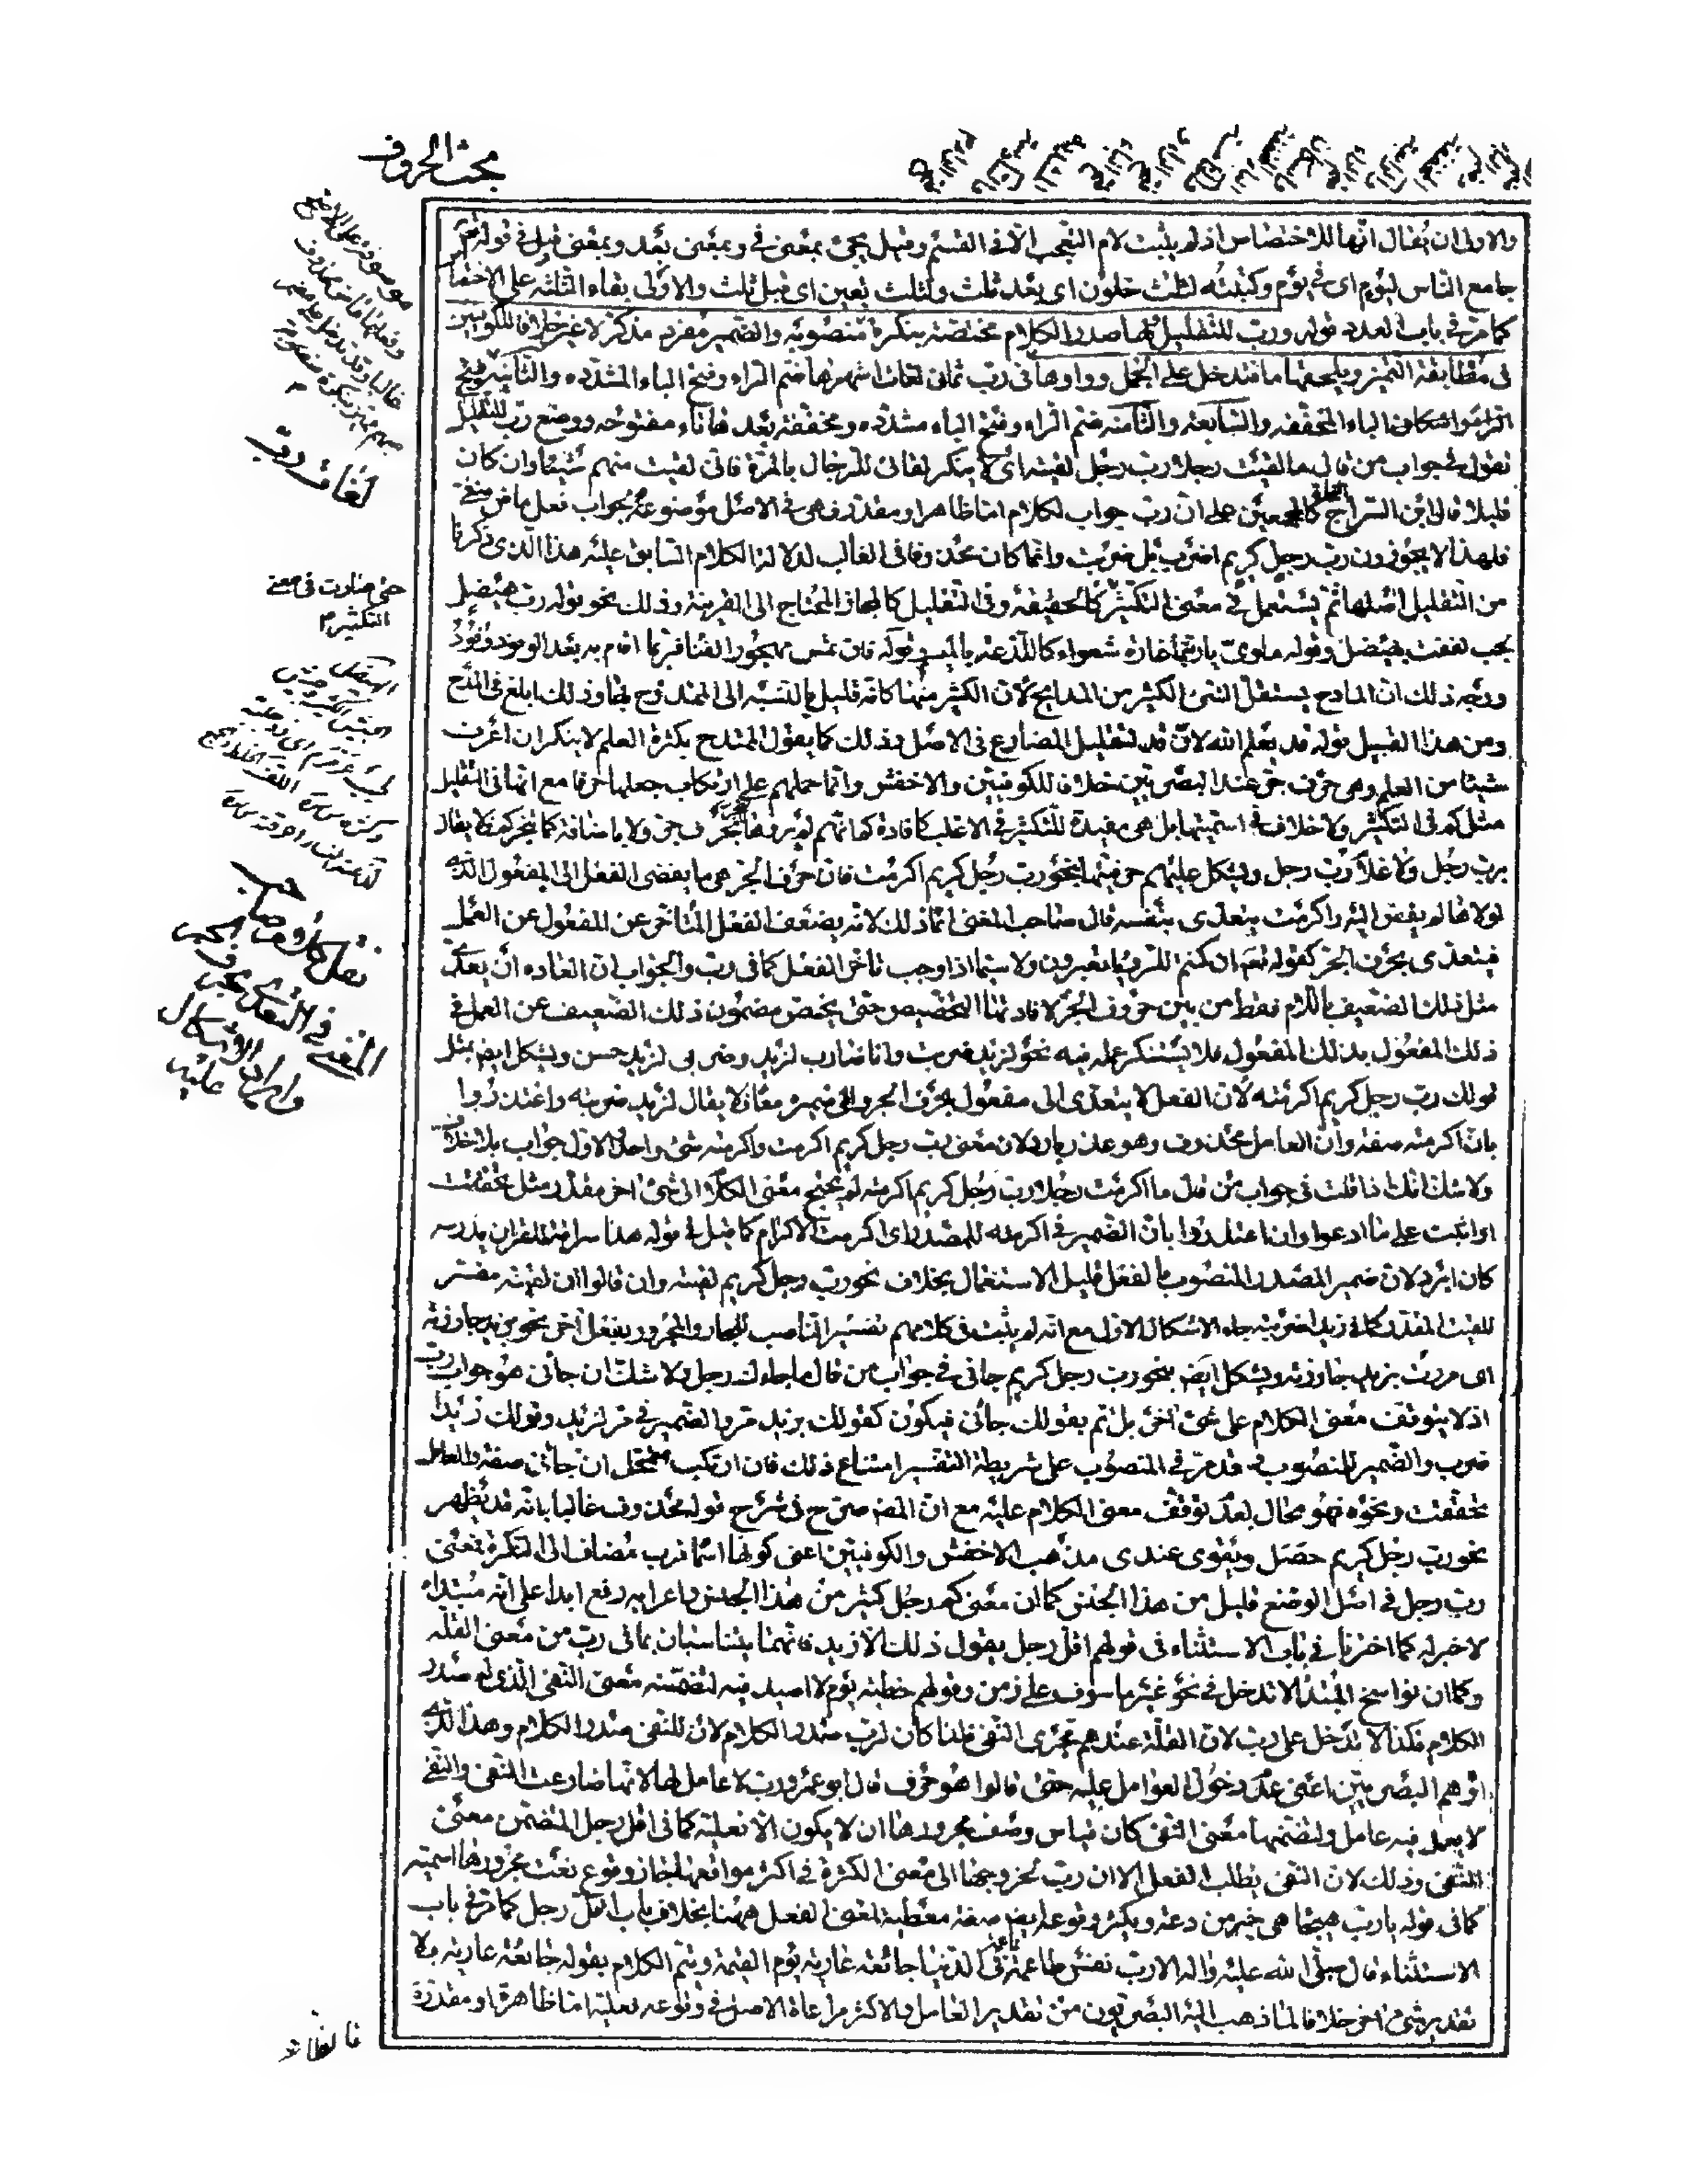 مبحث الحروف
والاولى ان يقال انها للاختصاص اذ لم يثبت لام التعجب الا فى القسم وقيل يجئ بمعنى فى وبمعنى بعد وبمعنى قبل فى قوله تعالى
جامع الناس ليوم اى فى يوم وكتبته لثلث خلون اى بعد ثلث ولثلث بقين اى قبل ثلث والاولى بقاء الثلثة على الاختصاص
كما مر فى باب العدد قوله ورب للتقليل لها صدر الكلام مختصة بنكرة والضمير مفرد مذكر لا غير خلافا للكوفيين
فى مطابقة التميز ويلحقها ما فتدخل على الجمل وواوها فى رب ثمانى لغات اشهرها ضم الراء وفتح الباء المشددة والثانية فتح
الراء واسكان الباء المخففة والسابعة والثامنة ضم الراء وفتح الباء مشددة ومخففة بعدها تاء مفتوحة ووضع رب للتقليل
تقول فى جواب من قال ما لقيت رجلا رب رجل لقيته اى لا ينكر لقائى للرجال بالمرة فانى لقيت منهم شيئا وان كان
قليلا قال ابن السراج كالمجمعين على ان رب جواب لكلام اما ظاهر او مقدر فهى فى الاصل موضوعة لجواب فعل ماض منفى
فلهذا لا يجوزون رب رجل كريم اضرب بل ضربت وانما كان محذوفا فى الغالب لدلالة الكلام السابق عليه هذا الذى ذكرنا
من التقليل اصلها ثم يستعمل فى معنى التكثير كالحقيقة وفى التقليل كالمجاز المحتاج الى القرينة وذلك نحو قوله رب هيضل
لجب لففت بهيضل وقوله ماوى يا ربتما غارة شعواء كاللذعة بالميسم وقوله فان تمس مهجور الفناء فربما اقام به بعد الوفود وفود
ووجه ذلك ان المادح يستقل الشئ الكثير من المدايح لان الكثير منها كانه قليل بالنسبة الى الممدوح بها وذلك ابلغ فى المدح
ومن هذا القبيل قوله قد يعلم الله لان قد لتقليل المضارع فى الاصل فذلك كما يقول المتمدح بكثرة العلم لا ينكر ان اعرف
شيئا من العلم وهى حرف جر عند البصريين خلافا للكوفيين والاخفش وانما حملهم على ارتكاب جعلها حرفا مع انها فى التقليل
مثل كم فى التكثير ولا خلاف فى اسميتها بل هى مفيدة للتكثير فى الاغلب كافادة كم انهم لم يروها تجر بحرف جر ولا باضافة كما يجر كم فلا يقال
برب رجل ولا غلام رب رجل ويشكل عليهم حرفيتها بنحو رب رجل كريم اكرمت فان حرف الجر هى ما يفضى الفعل الى المفعول الذى
لولاها لم يفض اليه واكرمت يتعدى بنفسه قال صاحب المغنى انما ذلك لانه يضعف الفعل المتاخر عن المفعول عن العمل
فيتعدى بحرف الجر كقوله تعم ان كنتم للرؤيا تعبرون ولا سيما اذا وجب تاخر الفعل كما فى رب والجواب ان العادة ان يعدى
مثل ذلك الضعيف باللام فقط من بين حروف الجر لافادتها التخصيص حتى يختص مضمون ذلك الضعيف عن العمل فى
ذلك المفعول بذلك المفعول فلا يستنكر عمله فيه نحو لزيد ضربت وانا ضارب لزيد وضربى لزيد حسن ويشكل ايض بمثل
قولك رب رجل كريم اكرمته لان الفعل لا يتعدى الى مفعول بحرف الجر والى ضميره معا لا يقال لزيد ضربته واعتذروا
بان اكرمته صفة وان العامل محذوف وهو عذر بارد لان معنى رب رجل كريم اكرمت واكرمته شئ واحد والاول جواب بلا خلاف
ولا شك انك اذا قلت فى جواب من قال ما اكرمت رجلا رب رجل كريم اكرمته لم يحتج معنى الكلام الى شئ اخر مقدر مثل تحققت
او اثبت على ما ادعوا وان اعتذروا بان الضمير فى اكرمته للمصدر اى اكرمت الاكرام كما قيل فى قوله هذا سراقة للقران يدرسه
كان ابرد لان ضمير المصدر المنصوب بالفعل قليل الاستعمال بخلاف نحو رب رجل كريم لقيته وان قالوا ان لقيته مفسر
للقيت المقدر كما فى زيدا ضربته جاء الاشكال الاول مع انه لم يثبت فى كلامهم تفسير الناصب للجار والمجرور بفعل اخر نحو بزيد جاوزته
اى مررت بزيد جاوزته ويشكل ايض بنحو رب رجل كريم جائنى فى جواب من قال ما جاءك رجل ولا شك ان جائنى هو جواب رب
اذ لا يتوقف معنى الكلام على شئ اخر بل تم بقولك جائنى فيكون كقولك بزيد مر والضمير فى مر لزيد وقولك زيدا
ضرب والضمير للمنصوب وقد مر فى المنصوب على شريطة التفسير امتناع ذلك فان ارتكب متمحل ان جائنى صفة والعامل
تحققت ونحوه فهو محال لعدم توقف معنى الكلام عليه مع ان المص صرح فى شرح قوله محذوف غالبا بانه قد يظهر
نحو رب رجل كريم حصل ويقوى عندى مذهب الاخفش والكوفيين اعنى كونها اسما فرب مضاف الى النكرة فمعنى
رب رجل فى اصل الوضع قليل من هذا الجنس كما ان معنى كم رجل كثير من هذا الجنس واعرابه رفع ابدا على انه مبتداء
لا خبر له كما اخترنا فى باب الاستثناء فى قولهم اقل رجل يقول ذلك الا زيد فانهما يتناسبان بما فى رب من معنى القلة
وكما ان نواسخ المبتدا لا تدخل فى نحو غير ماسوف على زمن وقولهم خطيئة يوم لا اصيد فيه لتضمنه معنى النفى الذى له صدر
الكلام فكذا لا تدخل على رب لان القلة عندهم تجرى مجرى النفى فلذا كان لرب صدر الكلام لان للنفى صدر الكلام وهذا الذى
اوهم البصريين اعنى عدم دخول العوامل عليه حتى قالوا هو حرف قال ابو عمرو رب لا عامل لها لانها ضارعت النفى والنفى
لا يعمل فيه عامل ولتضمنها معنى النفى كان قياس وصف مجرورها ان لا يكون الا فعلية كما فى اقل رجل المتضمن معنى
النفى وذلك لان النفى يطلب الفعل الا ان رب لخروجها الى معنى الكثرة فى اكثر مواقعها جاز وقوع نعت مجرورها اسمية
كما فى قوله يا رب هيجا هى خير من دعة ويكثر وقوعه ايض صفة معطية لمعنى الفعل ههنا بخلاف باب اقل رجل كما مر فى باب
الاستثناء قال صلى الله عليه واله الا رب نفس طاعمة ناعمة فى الدنيا جائعة عارية يوم القيمة ويتم الكلام بقوله جائعة عارية بلا
تقدير شئ اخر خلافا لما ذهب اليه البصريون من تقدير العامل والاكثر مراعاة الاصل فى وقوعه فعلية اما ظاهرة او مقدرة
موصوفة على الاصح
وفعلها ماض محذوف
غالبا وقد تدخل على مضمر
مبهم مميز بنكرة منصوبة
لغات رب
حتى صارت فى معنى
التكثير
نقل كلام صاحب
المغنى فى التعدى بحرف الجر
وايراد الاشكال
عليه